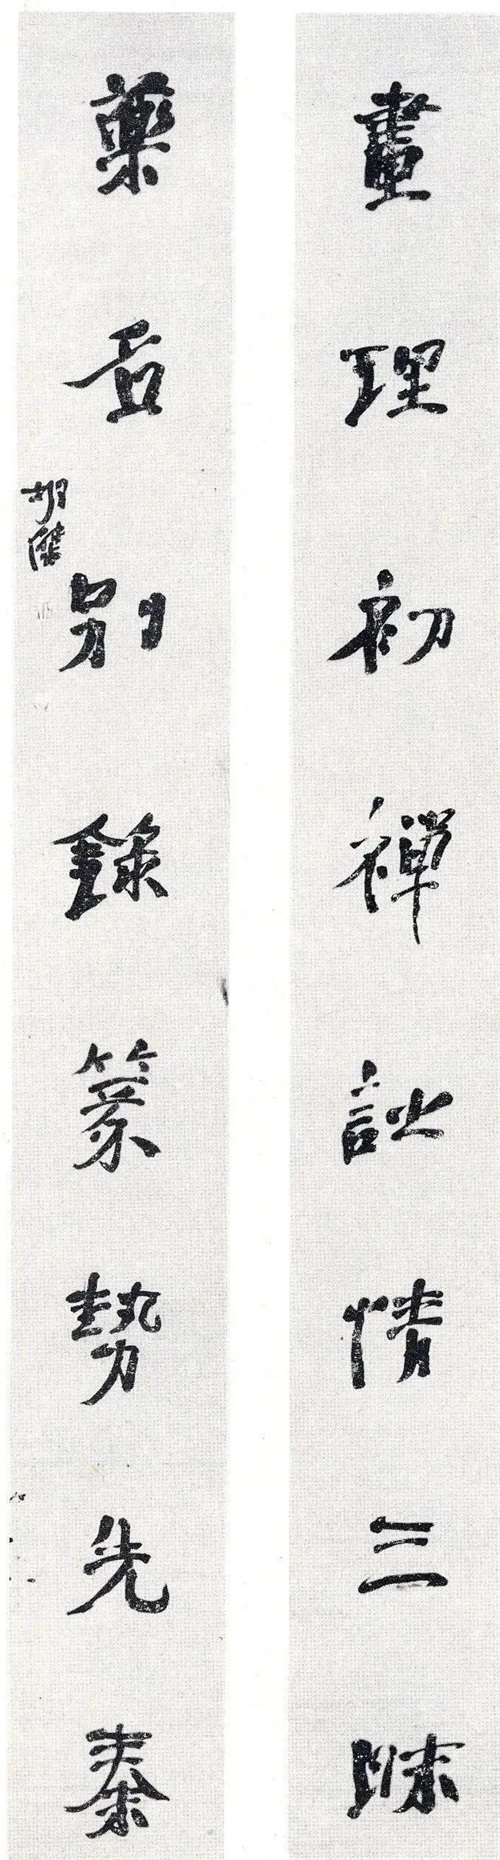 畫理初禪詩情三昧
藥石別錄篆勢先秦
胡傑